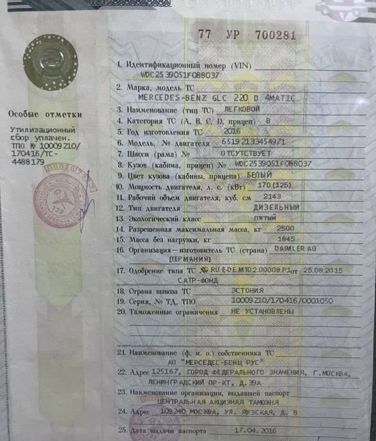 77 УР 700281
1. Идентификационный номер (VIN)
WDC2539051F088037
2. Марка, модель ТС
MERCEDES-BENZ GLC 220 D 4MATIC
3. Наименование (тип ТС) ЛЕГКОВОЙ
4. Категория ТС (А, В, С, D, прицеп) В
5. Год изготовления ТС 2016
6. Модель, № двигателя 65192133454971
7. Шасси (рама) № ОТСУТСТВУЕТ
8. Кузов (кабина, прицеп) № WDC2539051F088037
9. Цвет кузова (кабины, прицепа) БЕЛЫЙ
10. Мощность двигателя, л. с. (кВт) 170(125)
11. Рабочий объем двигателя, куб. см 2143
12. Тип двигателя ДИЗЕЛЬНЫЙ
13. Экологический класс ПЯТЫЙ
14. Разрешенная максимальная масса, кг 2500
15. Масса без нагрузки, кг 1845
16. Организация – изготовитель ТС (страна) DAIMLER AG
(ГЕРМАНИЯ)
17. Одобрение типа ТС № от 25.08.2015
САТР-ФОНД
18. Страна вывоза ТС ЭСТОНИЯ
19. Серия, № ТД, ТПО 10009210/170416/0001050
20. Таможенные ограничения НЕ УСТАНОВЛЕНЫ
21. Наименование (ф. и. о.) собственника ТС
АО "МЕРСЕДЕС-БЕНЦ РУС"
22. Адрес 125167, ГОРОД ФЕДЕРАЛЬНОГО ЗНАЧЕНИЯ, Г.МОСКВА,
ЛЕНИНГРАДСКИЙ ПР-КТ, Д.39А
23. Наименование организации, выдавшей паспорт
ЦЕНТРАЛЬНАЯ АКЦИЗНАЯ ТАМОЖНЯ
24. Адрес 109240, МОСКВА, УЛ. ЯУЗСКАЯ, Д. 8
25. Дата выдачи паспорта 17.04.2016
Особые отметки
Утилизационный
сбор уплачен.
ТПО № 10009210/
170416/ТС-
4488179